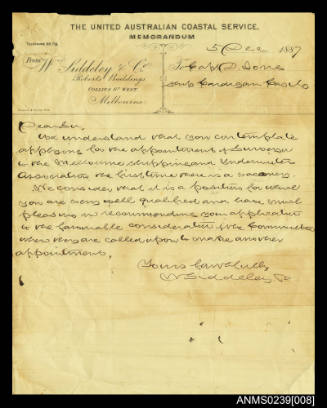 THE UNITED AUSTRALIAN COASTAL SERVICE.
MEMORANDUM
5 Dec 1887
From W Siddeley & Co
Roberts Buildings
COLLINS ST WEST
Melbourne
To Capt
Ship
Dear Sir,
We understand that you contemplate
applying for the appointment of Surveyor
to the Melbourne Shipping and Underwriters
Association the first time there is a vacancy.
We consider that it is a position for which
you are very well qualified and have much
pleasure in recommending your application
to the favourable consideration of the Committee
when they are called upon to make another
appointment.
Yours faithfully
W Siddeley & Co
ANMS0239[008]